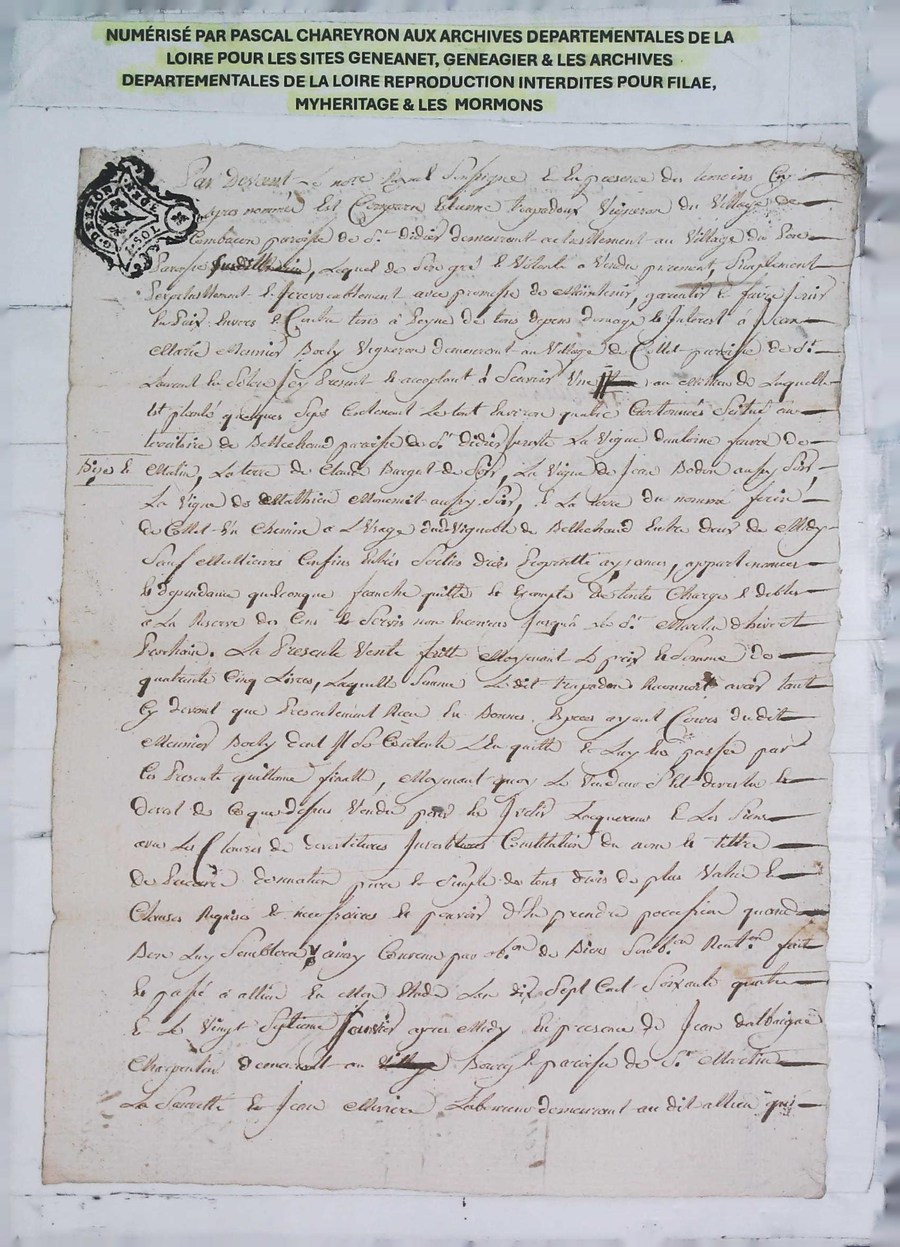 NUMÉRISÉ PAR PASCAL CHAREYRON AUX ARCHIVES DEPARTEMENTALES DE LA
LOIRE POUR LES SITES GENEANET, GENEAGIER & LES ARCHIVES
DEPARTEMENTALES DE LA LOIRE REPRODUCTION INTERDITES POUR FILAE,
MYHERITAGE & LES MORMONS
G. DE LYON
Par Devant Le nore Royal Soussigne & En presence des temoins Cy
apres nommés Est Comparu Etienne trapadoux Vigneron du Village de
Combaçon paroisse de St. Didier demeurant actuellement au Village du
Lequel de Son gré & Volonté a Vendu purement, Simplement
Perpetuellement & Irrevocablement avec promesse de Maintenir, garentir & faire Jouir
En Paix Envers & Contre tous à peyne de tous depens domage & Interest à Jean
Marie Meunier Bochy Vigneron demeurant au Village de Collet paroisse de St.
Laurent En Solore Icy Present & acceptant à Scavoir Une au Milieu de Laquelle
Est planté quelques Seps Contenant Le tout Environ quatre Cartonnées Scitué au
territoire de Bellechaud paroisse de St. Didier Juxte La Vigne dantoine favre de
Bise &
Matin, La terre de Claude Burget de Soir, La Vigne de Jean Bodin aussy Soir,
La Vigne de Mathieu aussy Soir, & La terre du nommé
de Collet Un Chemin a L'Usage dudt Vignoble de Bellechaud Entre deux de Midy
Sauf Meillieures Confins Entrés Sorties droits Proprietté aysances, appartenances
& dependance quelconque franche quitte & Exempte De toutes Charges & debtes
a La Reserve des Cens & Servis non Encourus Jusquà St. Martin d'hivert
Prochain. La Presente Vente faitte Moyenant Le prix & Somme de
quarente Cinq Livres, Laquelle Somme Le dit trapadoux Reconnoit avoir tout
Cy devant que Presentement Receu En Bonnes Espèces ayant Cours dudit
Meunier Bochy dont Il Se Contente L'En quitte & Luy En passer par
Ces Presente quittance finalle, Moyenant quoy Le Vendeur S'Est devestu &
de Ce que dessus Vendu pour En Lacquereur & Les Siens
avec Les Clauses de devestitures Investitures Constitution du nom & tittre
de Precaire donnation pure & Simple de tous droits de plus Value &
Clauses Requises & necessaires & pouvoir d'En prendre possession quand
Bon Luy Semblera ainsy Convenu par ob.on de Biens Soub.on Renc.on fait
& passé à allieu En Mon Etude L'an dix Sept Cent Soixante quatre
& Le Vingt Septieme Janvier apres Midy En presence de Jean dalbaigne
Charpentier demeurant au Bourg & paroisse de St. Martin
La Sauveté & Jean Laboureur demeurant au dit allieu qui